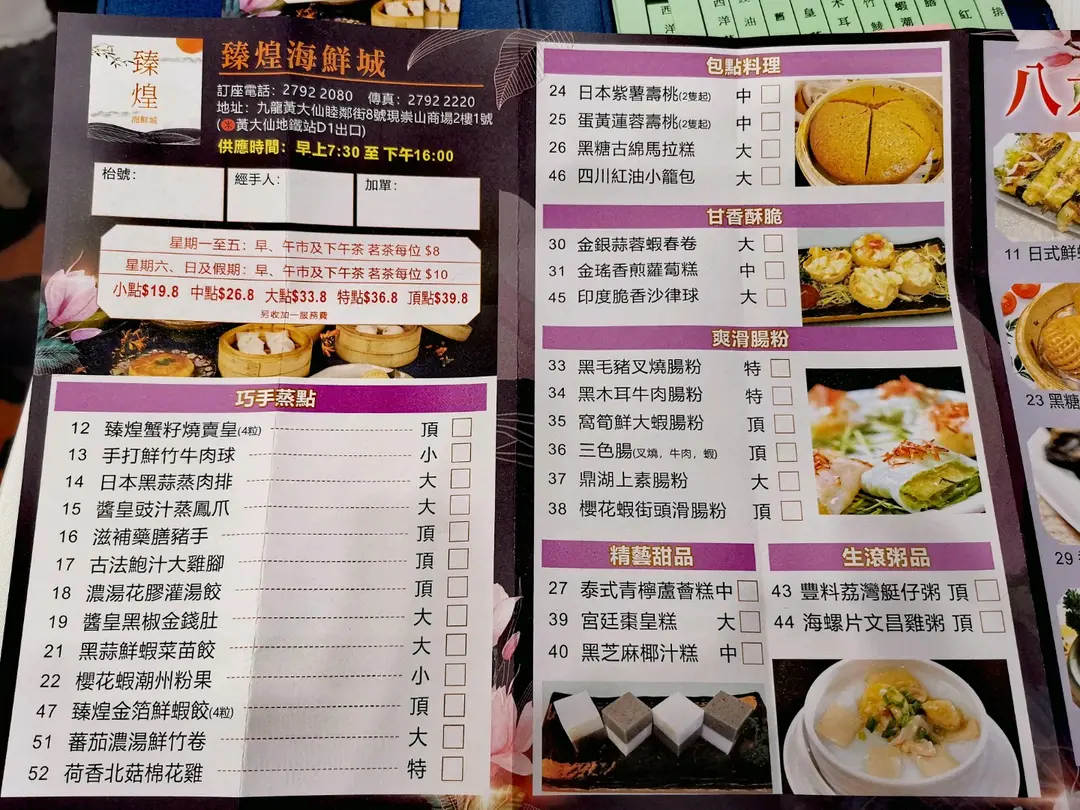 臻煌
海鮮城
臻煌海鮮城
訂座電話：2792 2080 傳真：2792 2220
地址：九龍黃大仙睦鄰街8號現崇山商場2樓1號
(黃大仙地鐵站D1出口)
供應時間：早上7:30 至 下午16:00
枱號：
經手人：
加單：
星期一至五：早、午市及下午茶 茗茶每位 $8
星期六、日及假期：早、午市及下午茶 茗茶每位 $10
小點$19.8 中點$26.8 大點$33.8 特點$36.8 頂點$39.8
另收加一服務費
巧手蒸點
12 臻煌蟹籽燒賣皇(4粒) 頂
13 手打鮮竹牛肉球 小
14 日本黑蒜蒸肉排 大
15 醬皇豉汁蒸鳳爪 大
16 滋補藥膳豬手 頂
17 古法鮑汁大雞腳 頂
18 濃湯花膠灌湯餃 頂
19 醬皇黑椒金錢肚 大
21 黑蒜鮮蝦菜苗餃 大
22 櫻花蝦潮州粉果 小
47 臻煌金箔鮮蝦餃(4粒) 頂
51 蕃茄濃湯鮮竹卷 大
52 荷香北菇棉花雞 特
包點料理
24 日本紫薯壽桃(2隻起) 中
25 蛋黃蓮蓉壽桃(2隻起) 中
26 黑糖古綿馬拉糕 大
46 四川紅油小籠包 大
甘香酥脆
30 金銀蒜蓉蝦春卷 大
31 金瑤香煎蘿蔔糕 中
45 印度脆香沙律球 大
爽滑腸粉
33 黑毛豬叉燒腸粉 特
34 黑木耳牛肉腸粉 特
35 窩筍鮮大蝦腸粉 頂
36 三色腸(叉燒，牛肉，蝦) 頂
37 鼎湖上素腸粉 大
38 櫻花蝦街頭滑腸粉 頂
精藝甜品
27 泰式青檸蘆薈糕 中
39 宮廷棗皇糕 大
40 黑芝麻椰汁糕 中
生滾粥品
43 豐料荔灣艇仔粥 頂
44 海螺片文昌雞粥 頂
11 日式鮮
23 黑糖
29